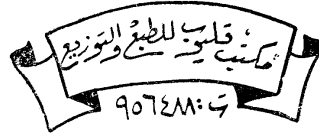 مكتب قليوب للطبع والتوزيع
ت : ٩٥٦٤٨٨